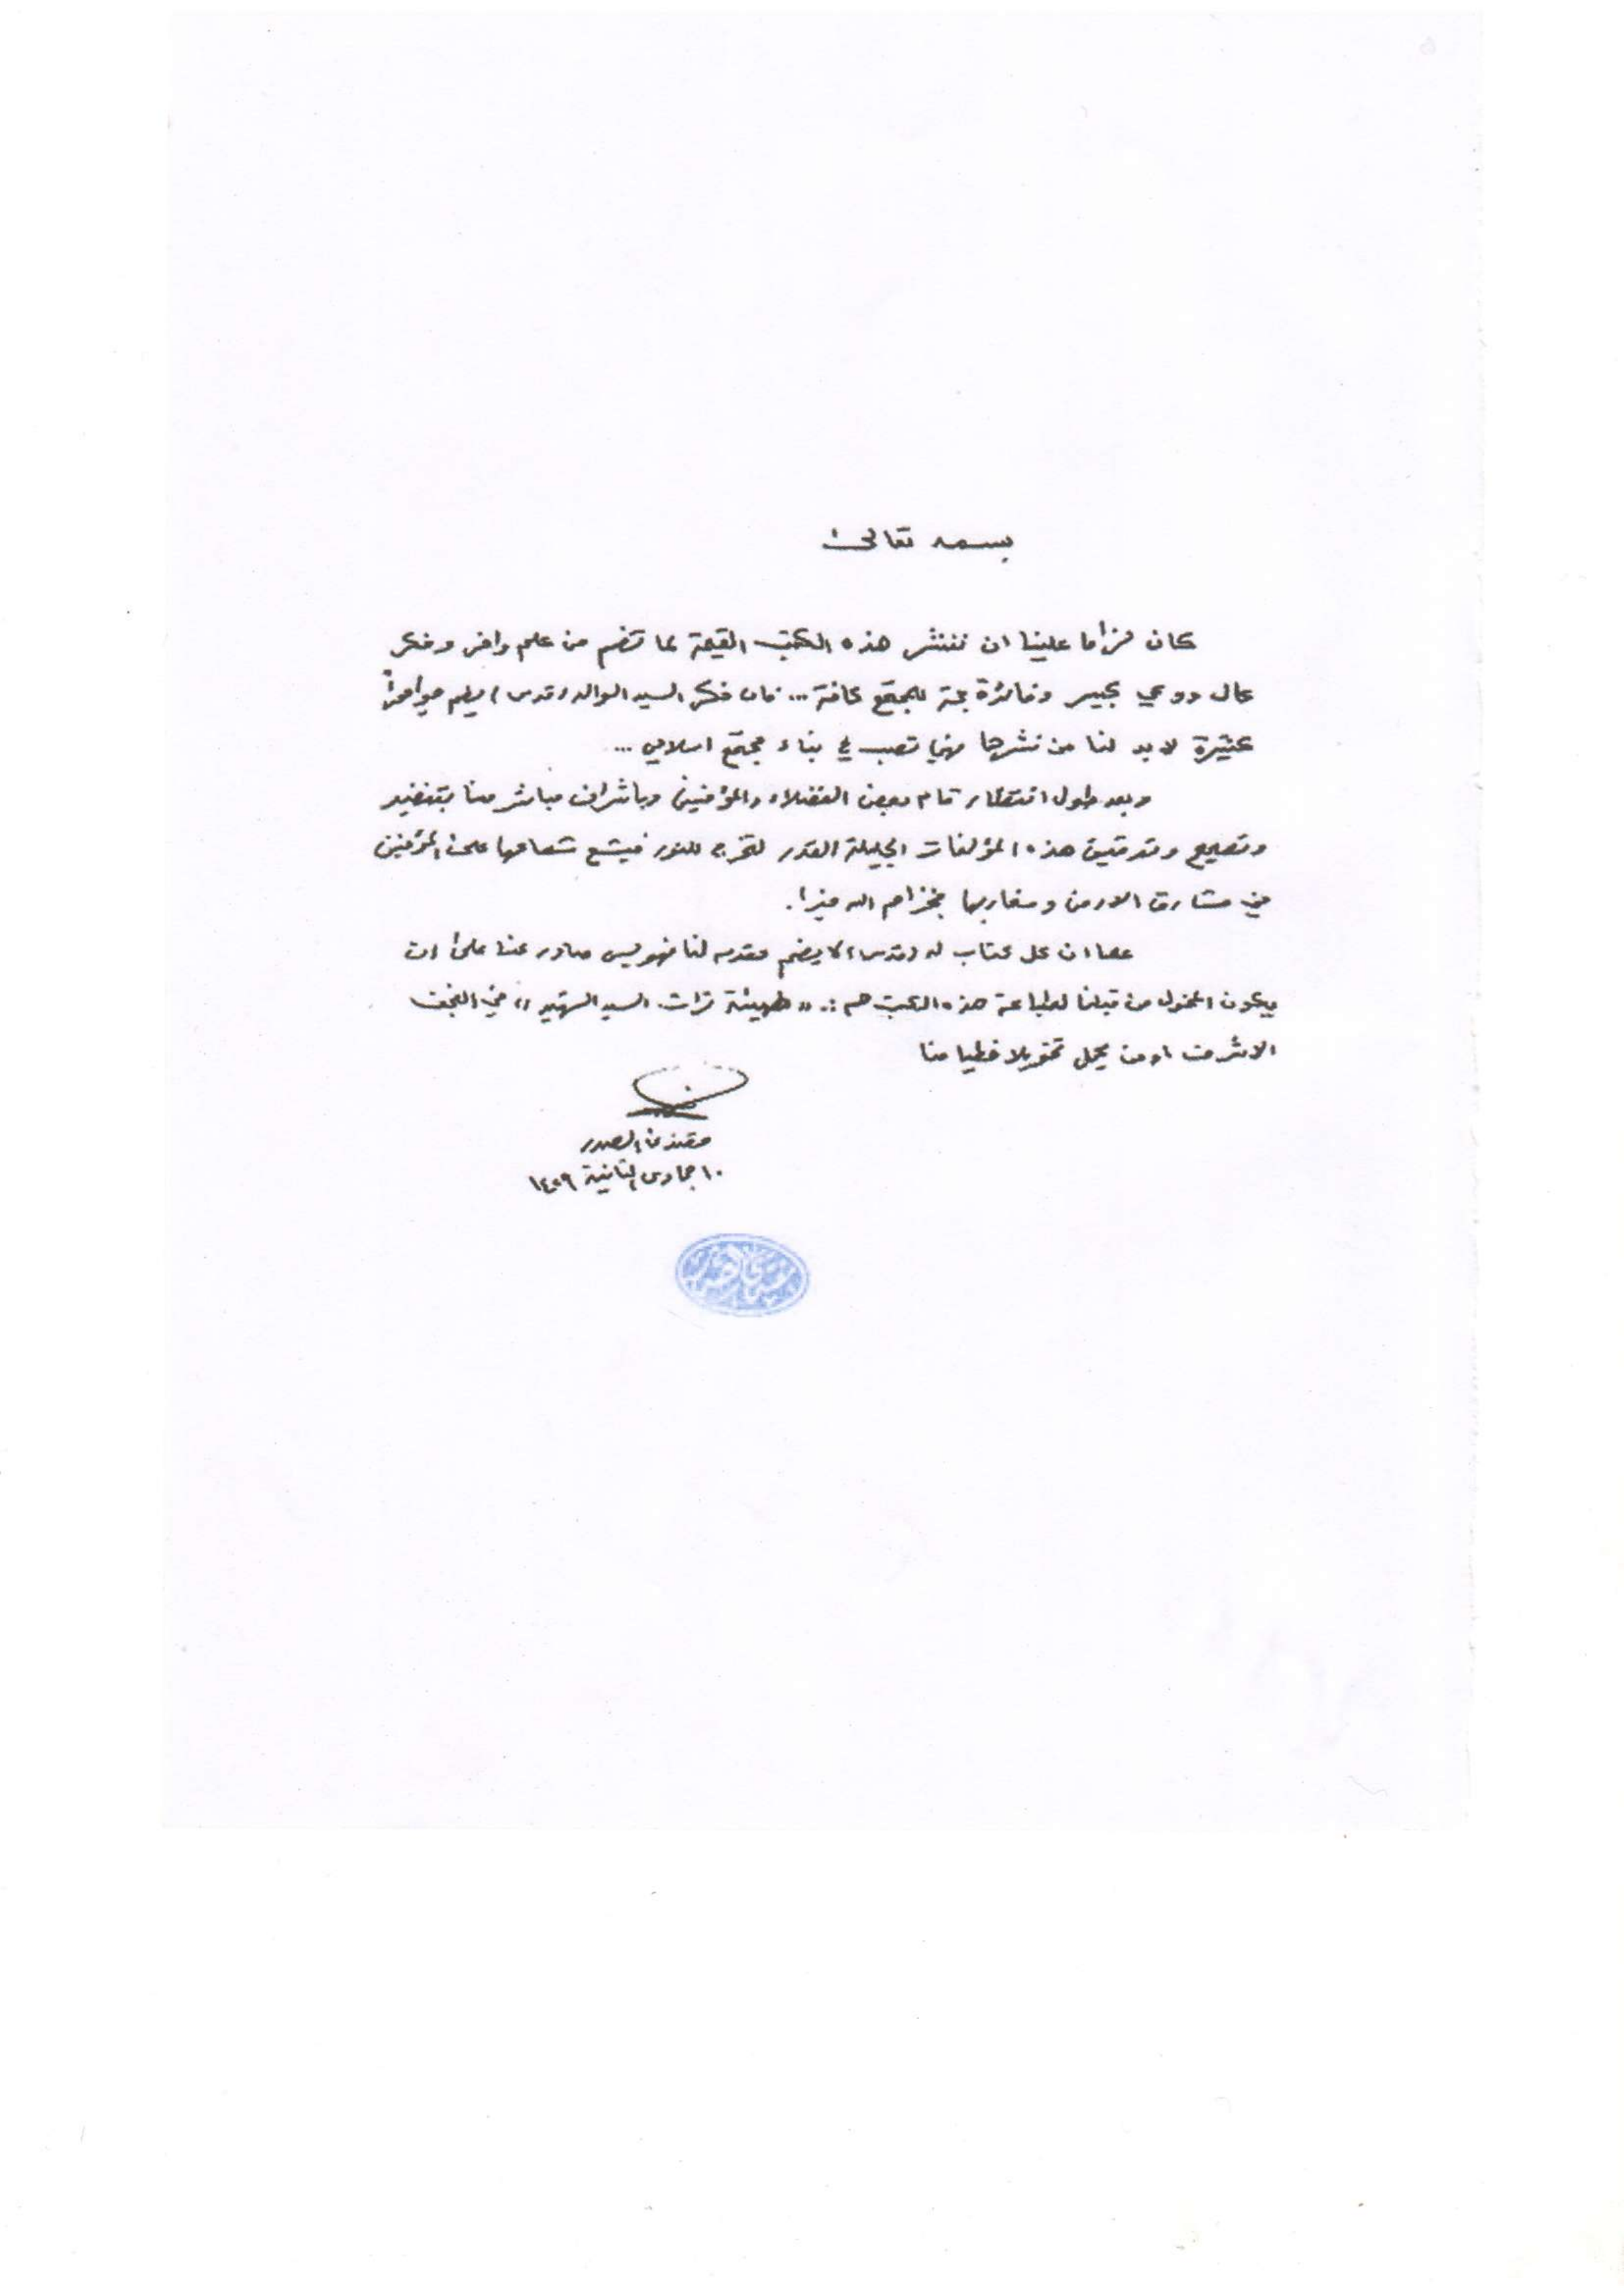 بسمه تعالى
كان لزاما علينا ان ننشر هذه الكتب القيمة لما تضم من علم وافر وفكر
عال ووعي كبير وفائدة جمة للمجتمع كافة ... فان فكر السيد الوالد (قدس) يضم
كثيرة لا بد لنا من نشرها فهي تصب في بناء مجتمع اسلامي ...
وبعد طول انتظار قام بعض الفضلاء والمؤمنين وباشراف مباشر منا بتنضيد
وتصحيح وتدقيق هذه المؤلفات الجليلة القدر لتخرج للنور فيشع شعاعها على المؤمنين
في مشارق الارض ومغاربها فجزاهم الله خيرا.
كما ان كل كتاب له (قدس) لا يضم مقدمه لنا فهو ليس صادر عنا على ان
يكون المخول من قبلنا لطباعة هذه الكتب هم : « هيئة تراث السيد الشهيد » في النجف
الاشرف او من يحمل تخويلا خطيا منا
مقتدى الصدر
١٠ جمادى الثانية ١٤٢٩
مقتدى الصدر